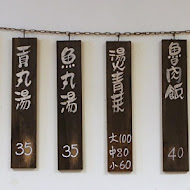 貢丸湯
35
魚丸湯
35
燙青菜
大100
中80
小60
魯肉飯
40